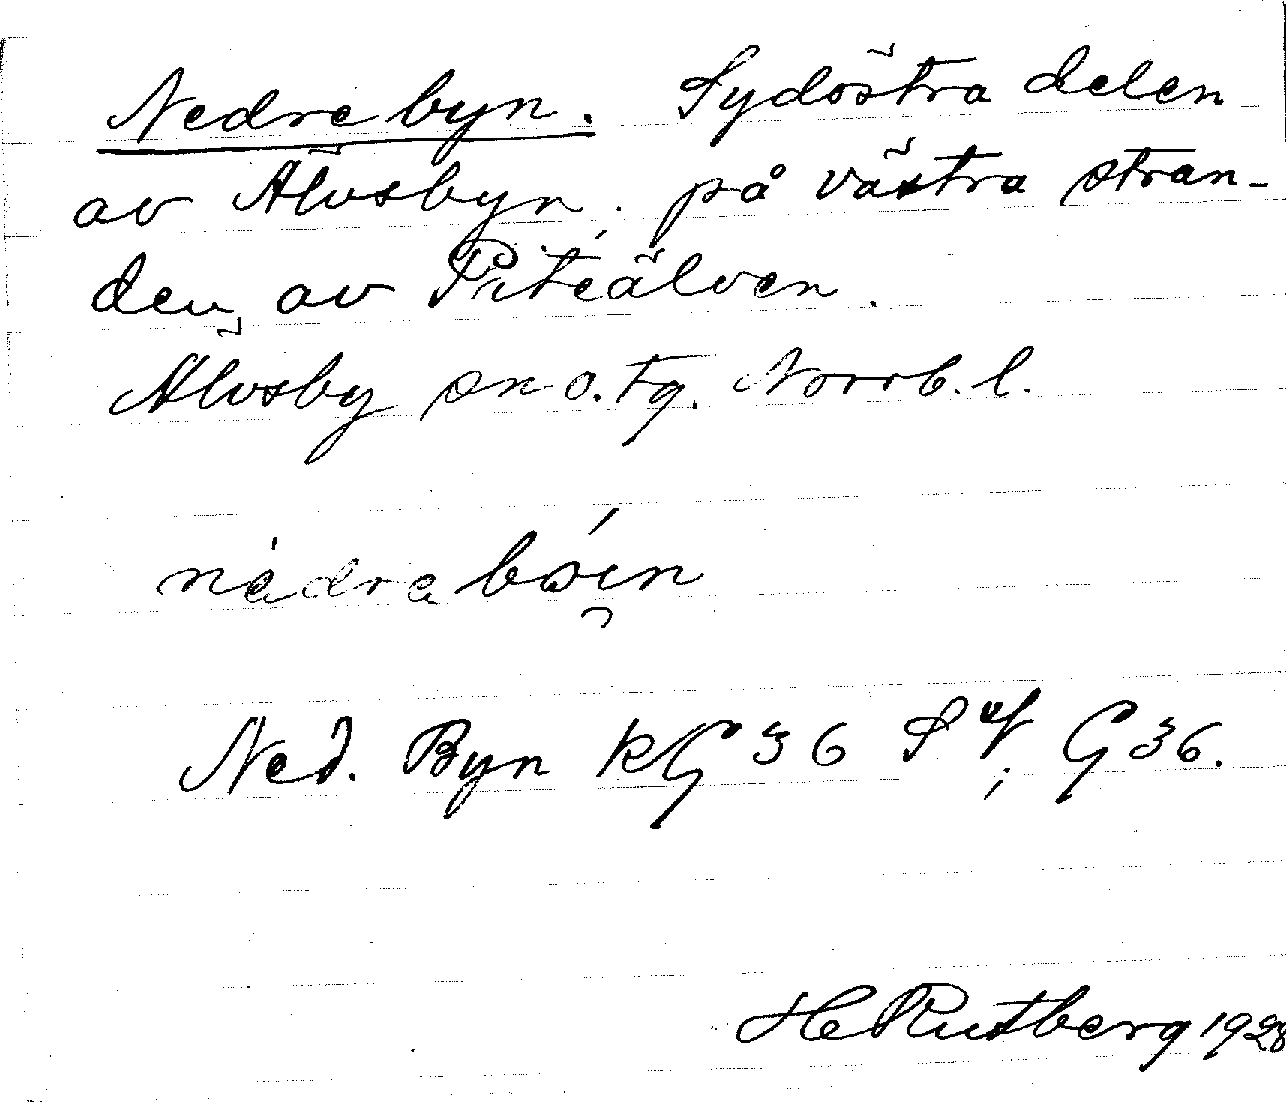 Nedre byn. Sydöstra delen
av Älvsbyn, på västra stran-
den av Piteälven.
Älvsby sn o. tg. Norrb. l.
nèdra bóin
Ned. Byn KG 36 G 36.
H Rutberg 1928